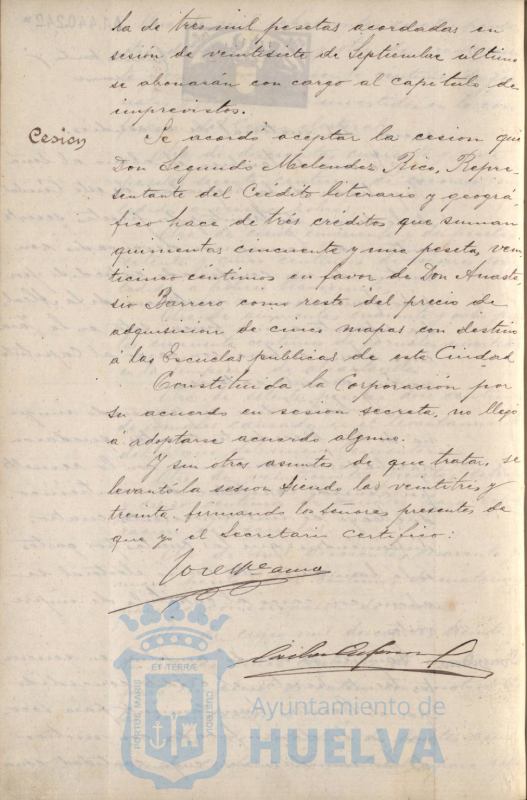 la de tres mil pesetas acordadas en
sesión de veintisiete de Septiembre último
se abonaran con cargo al capitulo de
imprevistos.
Cesion
Se acordó aceptar la cesion que
Don Segundo Melendez Rico, Repre-
sentante del Crédito literario y geográ-
fico hace de tres créditos que suman
quinientas cincuenta y una pesetas, vein-
ticinco centimos en favor de Don Anasta-
sio Barrero como resto del precio de
adquisision de cinco mapas con destino
á las Escuelas públicas de esta Ciudad
Constituida la Corporación por
su acuerdo en sesion secreta, no llegó
á adoptarse acuerdo alguno.
Y sin otros asuntos de que tratar, se
levantó la sesión siendo las veintitres y
treinta firmando los Señores presentes de
que yo el Secretario certifico:
PORTUS MARIS
ET TERRÆ
CUSTODIA
Ayuntamiento de
HUELVA